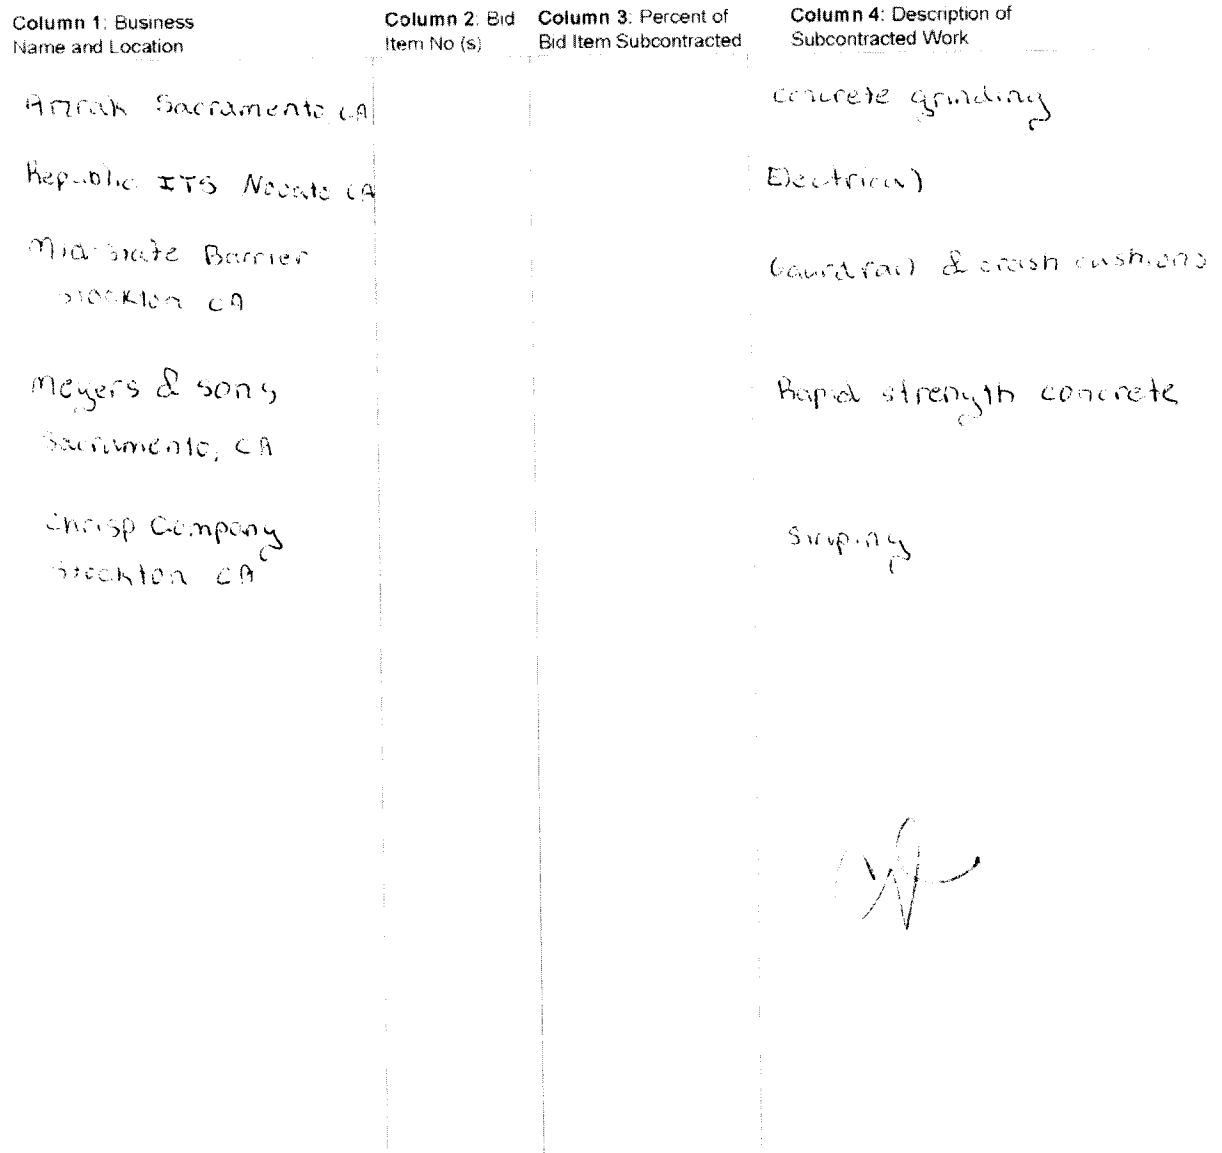 Column 1: Business
Name and Location
Column 2: Bid
Item No (s)
Column 3: Percent of
Bid Item Subcontracted
Column 4: Description of
Subcontracted Work
Amrak Sacramento, CA
concrete grinding
Republic ITS Novato CA
Electrical
Mid-State Barrier
Stockton CA
Gaurdrail & crash cushions
Meyers & sons
Sacramento, CA
Rapid strength concrete
Chrisp Company
Stockton CA
Striping